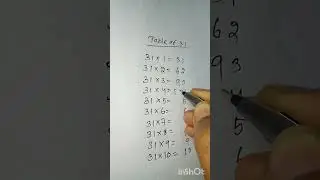 Table of 31
31 × 1 = 31
31 × 2 = 62
31 × 3 = 93
31 × 4 =
31 × 5 = 5
31 × 6 =
31 × 7 =
31 × 8 =
31 × 9 = 9
31 × 10 = 10
InShOt